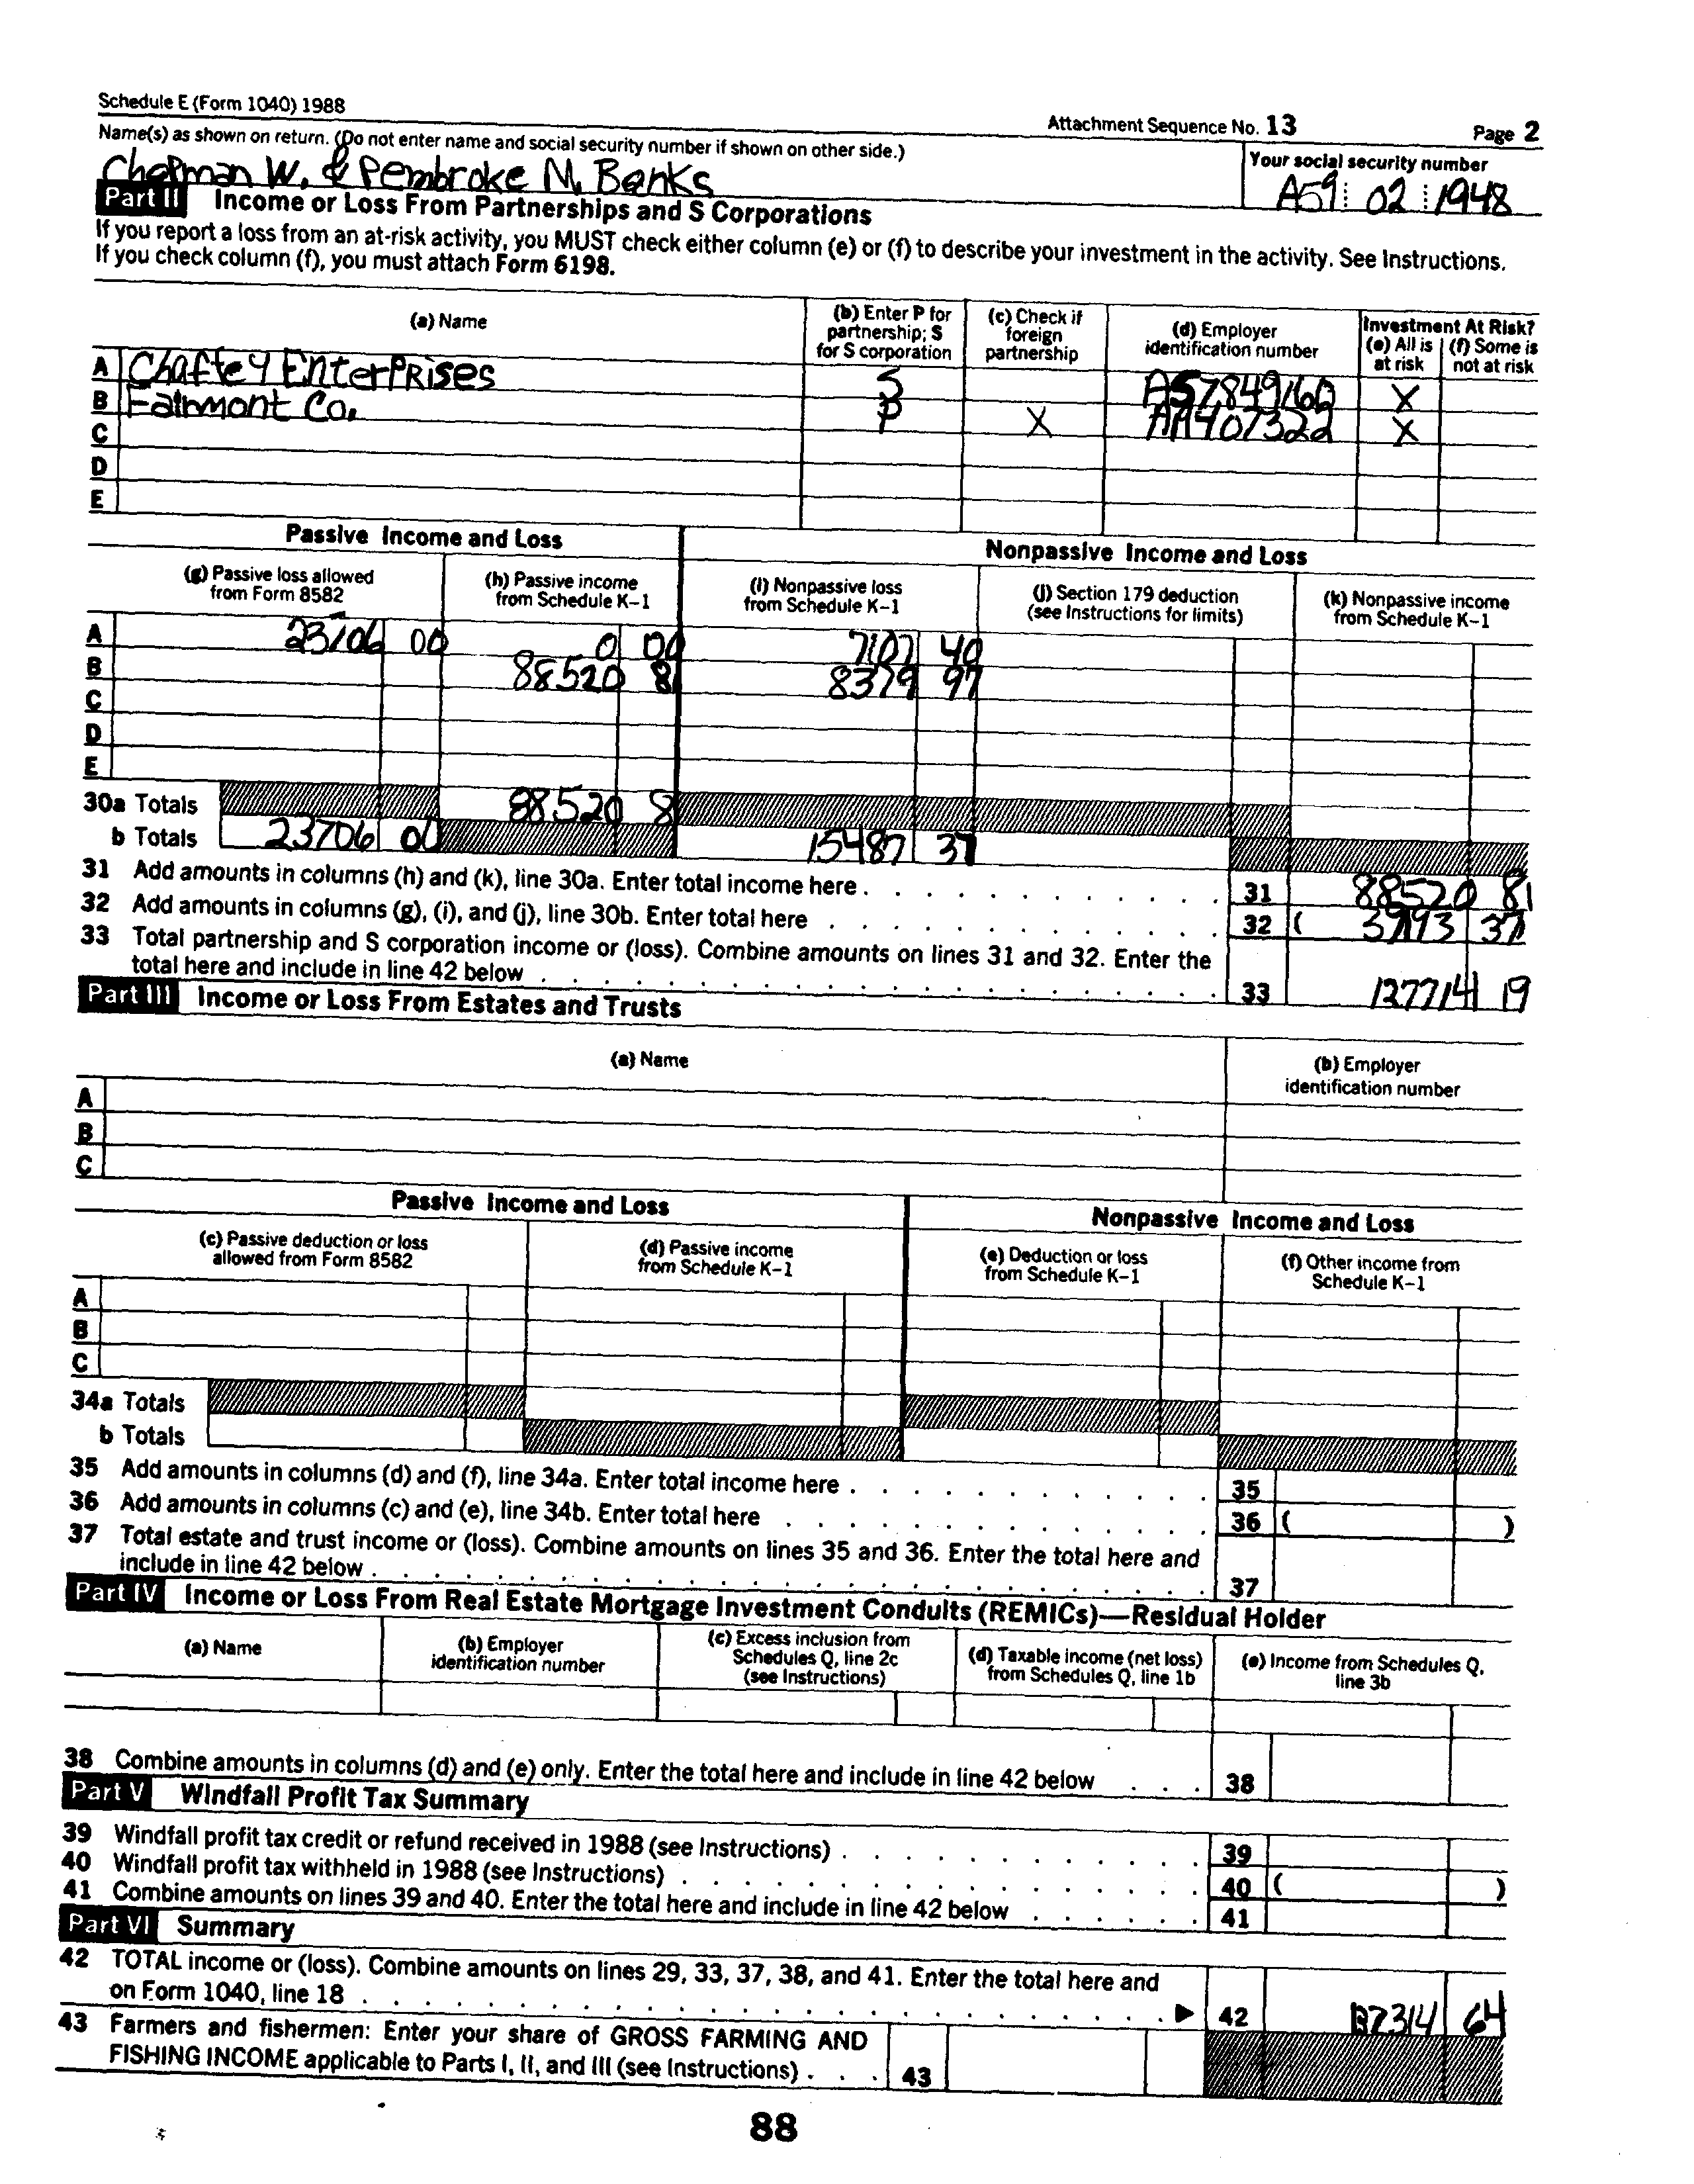 Schedule E (Form 1040) 1988
Attachment Sequence No. 13 Page 2
Name(s) as shown on return. (Do not enter name and social security number if shown on other side.)
Your social security number
Chapman W. & Pembroke M. Banks
A59 02 1948
Part II Income or Loss From Partnerships and S Corporations
If you report a loss from an at-risk activity, you MUST check either column (e) or (f) to describe your investment in the activity. See Instructions.
If you check column (f), you must attach Form 6198.
(a) Name
(b) Enter P for partnership; S for S corporation
(c) Check if foreign partnership
(d) Employer identification number
Investment At Risk?
(e) All is at risk
(f) Some is not at risk
A Chaffey EnterPrises S X
B Fairmont Co. P X AA407322 X
C
D
E
Passive Income and Loss
Nonpassive Income and Loss
(g) Passive loss allowed from Form 8582
(h) Passive income from Schedule K-1
(i) Nonpassive loss from Schedule K-1
(j) Section 179 deduction (see Instructions for limits)
(k) Nonpassive income from Schedule K-1
A 23706 00 0 00 7107 40
B 88520 81 8379 97
C
D
E
30a Totals 88520 81
b Totals 23706 00 15487 37
31 Add amounts in columns (h) and (k), line 30a. Enter total income here 31 88520 81
32 Add amounts in columns (g), (i), and (j), line 30b. Enter total here 32 ( 39193 37
33 Total partnership and S corporation income or (loss). Combine amounts on lines 31 and 32. Enter the
total here and include in line 42 below 33 127714 19
Part III Income or Loss From Estates and Trusts
(a) Name
(b) Employer identification number
A
B
C
Passive Income and Loss
Nonpassive Income and Loss
(c) Passive deduction or loss allowed from Form 8582
(d) Passive income from Schedule K-1
(e) Deduction or loss from Schedule K-1
(f) Other income from Schedule K-1
A
B
C
34a Totals
b Totals
35 Add amounts in columns (d) and (f), line 34a. Enter total income here 35
36 Add amounts in columns (c) and (e), line 34b. Enter total here 36 ( )
37 Total estate and trust income or (loss). Combine amounts on lines 35 and 36. Enter the total here and
include in line 42 below 37
Part IV Income or Loss From Real Estate Mortgage Investment Conduits (REMICs)—Residual Holder
(a) Name
(b) Employer identification number
(c) Excess inclusion from Schedules Q, line 2c (see Instructions)
(d) Taxable income (net loss) from Schedules Q, line 1b
(e) Income from Schedules Q, line 3b
38 Combine amounts in columns (d) and (e) only. Enter the total here and include in line 42 below 38
Part V Windfall Profit Tax Summary
39 Windfall profit tax credit or refund received in 1988 (see Instructions) 39
40 Windfall profit tax withheld in 1988 (see Instructions) 40 ( )
41 Combine amounts on lines 39 and 40. Enter the total here and include in line 42 below 41
Part VI Summary
42 TOTAL income or (loss). Combine amounts on lines 29, 33, 37, 38, and 41. Enter the total here and
on Form 1040, line 18 ▶ 42 64
43 Farmers and fishermen: Enter your share of GROSS FARMING AND
FISHING INCOME applicable to Parts I, II, and III (see Instructions) 43
88